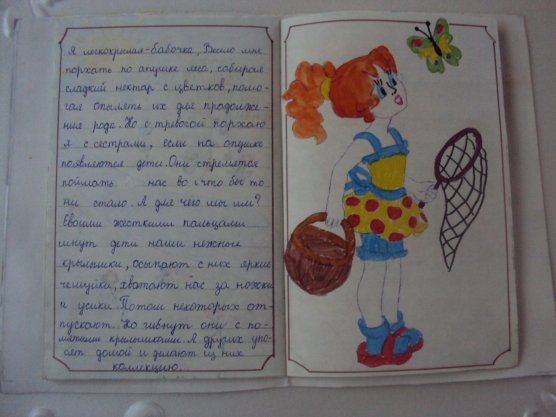 Я легкокрылая-бабочка, Весело мне
порхать по опушке леса, собирая
сладкий нектар с цветков, помо-
гая опылять их для продолже-
ния рода. Но с тревогой порхаю
я с сёстрами, если на опушке
появляются дети. Они стремятся
поймать нас во что бы то
ни стало. А для чего мы им?
Своими жёсткими пальцами
мнут дети наши нежные
крылышки, осыпают с них яркие
чешуйки, хватают нас за ножки
и усики. Потом некоторых от-
пускают. Но гибнут они с по-
мятыми крылышками. А других уно-
сят домой и делают из них
коллекцию...